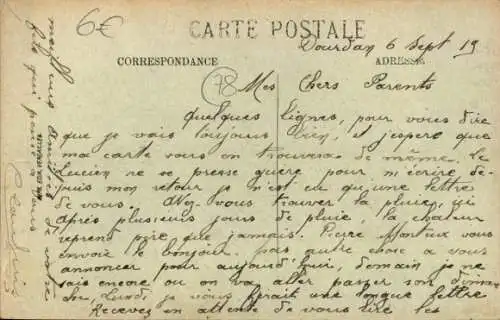 6€
CARTE POSTALE
Dourdan 6 Sept 19
CORRESPONDANCE
ADRESSE
78
Mes Chers Parents
quelques lignes, pour vous dire
que je vais toujours bien, il j'espere que
ma carte vous en trouvera de même. le
Lucien ne se presse guere pour m'ecrire de-
puis mon retour je n'ai eu qu'une lettre
de vous. Avez-vous trouver la pluie, ici
après plusieurs jours de pluie, la chaleur
reprend pire que jamais.
envoie le bonjour. pas autre chose a vous
annoncer pour aujourd'hui, demain je ne
sais encore ou on va aller passer son diman
che, Lundi je vous ferait une longue lettre
Recevez en attente de vous lire les
meilleurs amitiés de votre
fils qui pense a vous